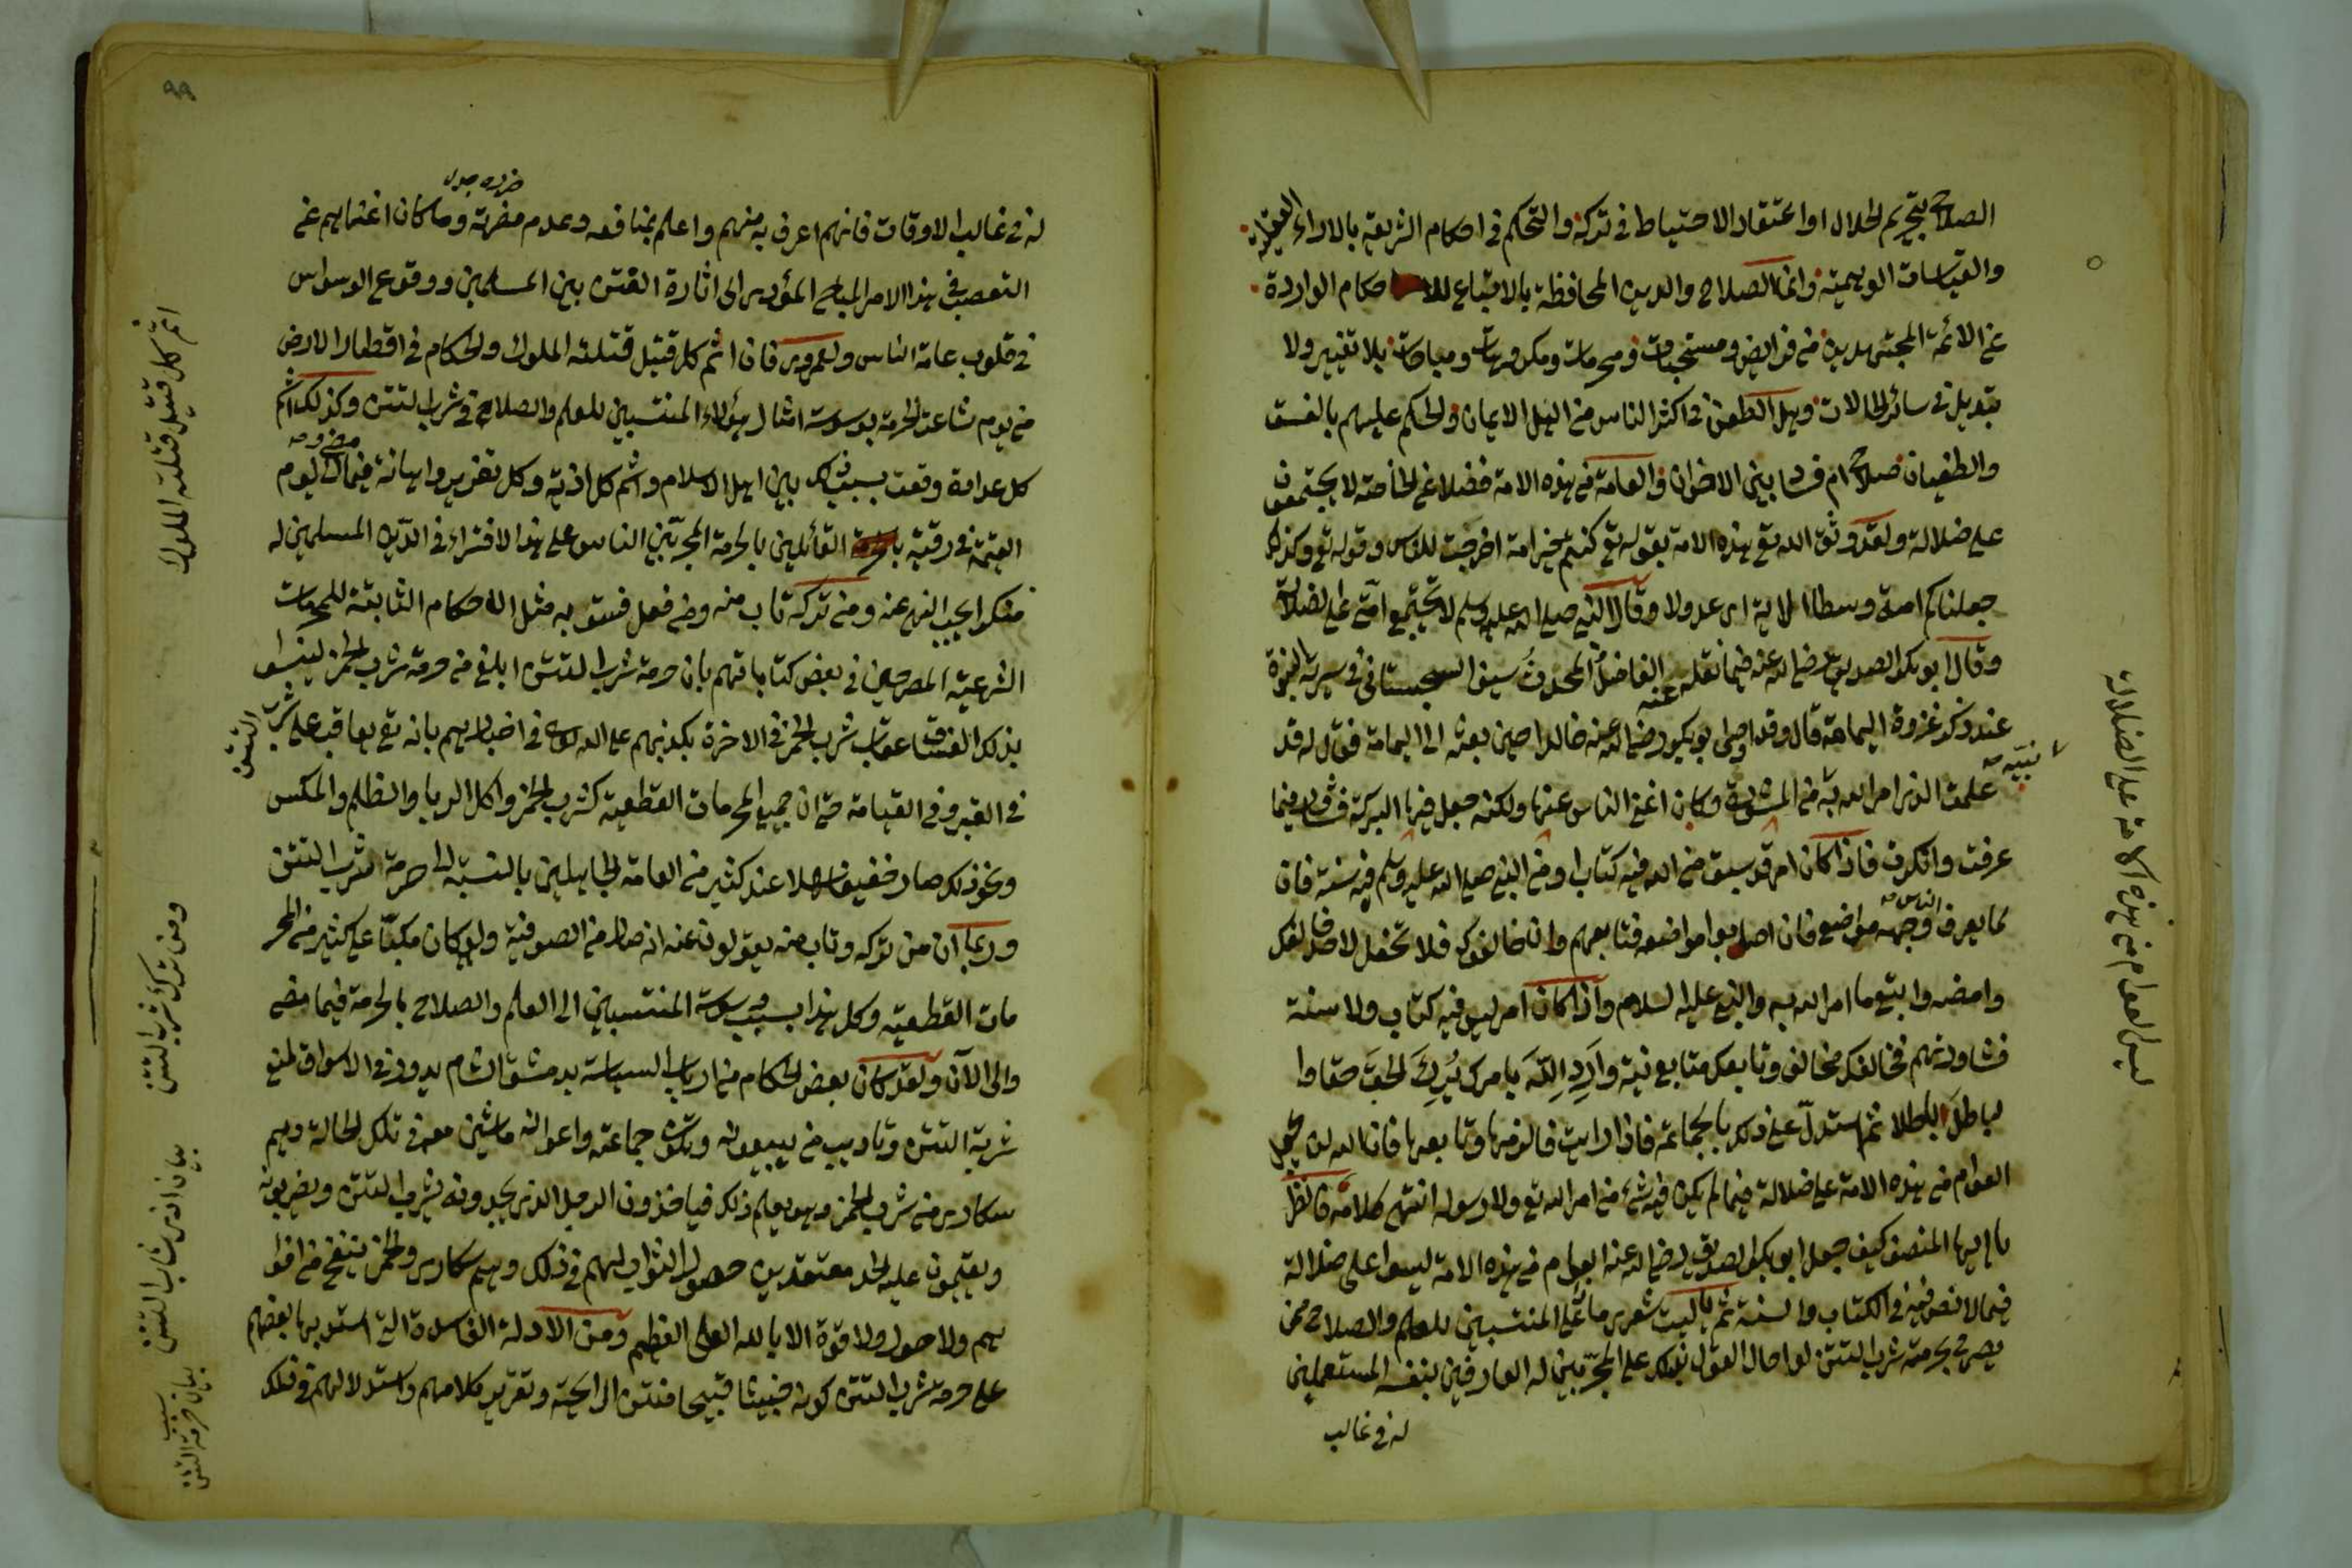 الصلاح بتحريم الحلال او اعتقاد الاحتياط في تركه والتحكم في احكام الشريعة بالاراء العقلية
والقياسات الوهمية وانما الصلاح والدين المحافظة بالاتباع للاحكام الواردة
عن الائمة المجتهدين من فرائض ومستحبات ومحرمات ومكروهات ومباحات بلا تغيير ولا
تبديل في سائر الحالات وهل الطعن في اكثر الناس من اهل الايمان والحكم عليهم بالفسق
والطغيان صلاح ام فساد بين الاخوان والعامة من هذه الامة فضلا عن الخاصة لا يجتمعون
على ضلالة ولقد وثق الله تع هذه الامة بقوله تع كنتم خير امة اخرجت للناس وقوله تع وكذلك
جعلناكم امة وسطا الاية اى عدولا وقال النبي صلى الله عليه وسلم لا تجتمع امتي على ضلالة
وقال ابو بكر الصديق رضي الله عنه فيما نقله عنه الفاضل المحدث سيف السجستاني في سيرته
عند ذكر غزوة اليمامة قال وقد اوصى ابو بكر رضي الله عنه خالدا حين بعثه الى اليمامة فقال له قد
علمت الذي امر الله به نبيه من المشورة وكان اغنى الناس عنها ولكنه جعل فيها البركة فشاور فيما
عرفت وانكرت فاذا كان امر قد سبق من الله فيه كتاب او من النبي صلى الله عليه وسلم فيه سنة فان
لما يعرف الناس وجهه مواضع فان اصابوا مواضعه فتابعهم وان خالفوك فلا تحفل لاختلافك
وامضه واتبع ما امر الله به والنبي عليه السلام واذا كان امر ليس فيه كتاب ولا سنة
فشاورتهم فخالفك مخالف وتابعك متابع نية وارد الله يا من يرك الحق حقا وا
لباطل باطلا ثم استدل على ذلك بالجماعة فاذا رايت فالزمها وتابعها فان الله لن يجعل
العوام من هذه الامة على ضلالة فيما لم يكن فيه شئ من امر الله تع ولا رسوله انتهى كلامه فانظر
يا ايها المنصف كيف جعل ابو بكر الصديق رضي الله عنه العوام من هذه الامة ليسوا على ضلالة
فيما لا نص فيه في الكتاب والسنة ثم يا ليت شعرى ما على المنتسبين للعلم والصلاح ممن
يصرح بحرمة شرب التتن لو احال القول بذلك على المجربين له العارفين بنفعه المستعملين
له في غالب
ليس العوام من هذه الامة على الضلالة
٩٩
له في غالب الاوقات فانهم اعرف به منهم واعلم بمنافعه وعدم مضرته وما كان اغناهم عن
التعصب في هذا الامر المباح المؤدى الى اثارة الفتن بين المسلمين ووقوع الوسواس
في قلوب عامة الناس ولعمرى فان اثم كل قتيل قتلته الملوك والحكام في اقطار الارض
من يوم شاعت الحرمة بوسوسة امثال هؤلاء المنتسبين للعلم والصلاح في شرب التتن وكذلك اثم
كل عداوة وقعت بسبب ذلك بين اهل الاسلام واثم كل اذية وكل تعزير واهانة فيما مضى والى يوم
القيمة في رقبة القائلين بالحرمة المجرئين الناس على هذا الافتراء في الدين المسلمين له
منكرا يجب النهى عنه ومن تركه تاب منه ومن فعل فسق به مثل الاحكام الثابتة للمحرمات
الشرعية المصرحين في بعض كتاباتهم بان حرمة شرب التتن ابلغ من حرمة شرب الخمر لينسوا
بذلك الفساق عقاب شرب الخمر في الاخرة بكذبهم على الله تعالى في اخبارهم بانه تع يعاقب على شرب التتن
في القبر وفي القيامة حتى ان جميع المحرمات القطعية كشرب الخمر واكل الربا والظلم والمكس
ونحو ذلك صار خفيفا سهلا عند كثير من العامة الجاهلين بالنسبة الى حرمة شرب التتن
وربما ان من تركه وتاب منه يقولون عنه انه صار من الصوفية ولو كان مكبا على كثير من المحر
مات القطعية وكل هذا بسبب وسوسة المنتسبين الى العلم والصلاح بالحرمة فيما مضى
والى الآن ولقد كان بعض الحكام من ارباب السياسة بدمشق الشام يدور في الاسواق لمنع
شربة التتن وتاديب من يبيعونه وتكون جماعته واعوانه ماشين معه في تلك الحالة وهم
سكارى من شرب الخمر وهو يعلم ذلك فياخذون الرجل الذى يجدونه يشرب التتن ويضربونه
ويقيمون عليه الحد معتقدين حصول الثواب لهم في ذلك وهم سكارى والخمر ينفح من افوا
ههم ولا حول ولا قوة الا بالله العلى العظيم ومن الادلة الفاسدة التي استدل بها بعضهم
على حرمة شرب التتن كونه خبيثا قبيحا منتن الرايحة وتقرير كلامهم واستدلالهم في ذلك
اثم كل قتيل قتلته الملوك
ومن ترك شرب التتن
بيان اذى شارب التتن
بيان سبب حرمة التتن